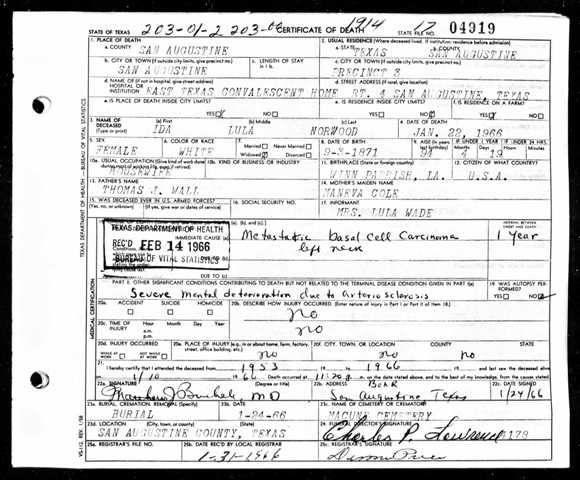 203-01-2 203-0 1914 17
STATE OF TEXAS CERTIFICATE OF DEATH STATE FILE NO. 04919
1. PLACE OF DEATH 2. USUAL RESIDENCE (Where deceased lived. If institution: residence before admission)
a. COUNTY SAN AUGUSTINE a. STATE TEXAS SAN AUGUSTINE
b. CITY OR TOWN (If outside city limits, give precinct no.) c. LENGTH OF STAY in 1 b. c. CITY OR TOWN (If outside city limits, give precinct no.)
SAN AUGUSTINE PRECINCT 3
d. NAME OF (If not in hospital, give street address) HOSPITAL OR INSTITUTION d. STREET ADDRESS (If rural, give location)
EAST TEXAS CONVALESCENT HOME RT. 4 SAN AUGUSTINE, TEXAS
e. IS PLACE OF DEATH INSIDE CITY LIMITS? YES NO e. IS RESIDENCE INSIDE CITY LIMITS? YES NO f. IS RESIDENCE ON A FARM? YES NO
3. NAME OF DECEASED (Type or print) (a) First (b) Middle (c) Last 4. DATE OF DEATH
IDA LULA NORWOOD JAN. 22, 1966
5. SEX 6. COLOR OR RACE 7. Married Never Married Widowed Divorced 8. DATE OF BIRTH 9. AGE (In years last birthday) IF UNDER 1 YEAR IF UNDER 24 HRS.
FEMALE WHITE 9-3-1871 94 4 19
10a. USUAL OCCUPATION (Give kind of work done during most of working life, even if retired) 10b. KIND OF BUSINESS OR INDUSTRY 11. BIRTHPLACE (State or foreign country) 12. CITIZEN OF WHAT COUNTRY?
HOUSEWIFE WINN PARRISH, LA. U.S.A.
13. FATHER'S NAME 14. MOTHER'S MAIDEN NAME
THOMAS J. WALL MANERVA COLE
15. WAS DECEASED EVER IN U.S. ARMED FORCES? 16. SOCIAL SECURITY NO. 17. INFORMANT
(Yes, no, or unknown) (If yes, give war or dates of service) MRS. LULA WADE
TEXAS DEPARTMENT OF HEALTH
REC'D FEB 14 1966
BUREAU OF VITAL STATISTICS
IMMEDIATE CAUSE (a) Metastatic basal cell Carcinoma 1 Year
left neck
DUE TO (c)
PART II. OTHER SIGNIFICANT CONDITIONS CONTRIBUTING TO DEATH BUT NOT RELATED TO THE TERMINAL DISEASE CONDITION GIVEN IN PART I(a) 19. WAS AUTOPSY PERFORMED?
Severe mental deterioration due to arteriosclerosis YES NO
20a. ACCIDENT SUICIDE HOMICIDE 20b. DESCRIBE HOW INJURY OCCURRED (Enter nature of injury in Part I or Part II of item 18.)
no
20c. TIME OF INJURY Hour Month Day Year a.m. p.m. no
20d. INJURY OCCURRED WHILE AT WORK NOT WHILE AT WORK 20e. PLACE OF INJURY (e.g., in or about home, farm, factory, street, office building, etc.) 20f. CITY, TOWN, OR LOCATION COUNTY STATE
no no no
21. I hereby certify that I attended the deceased from 1953 to 1966 and last saw the deceased alive
1/10 66 Death occurred at 11:20 on the date stated above, and to the best of my knowledge, from the causes stated.
22a. SIGNATURE 22b. ADDRESS Box R 22c. DATE SIGNED
MD San Augustine Texas 1/24/66
23a. BURIAL, CREMATION, REMOVAL (Specify) 23b. DATE 23c. NAME OF CEMETERY OR CREMATORY
BURIAL 1-24-66 MACUNE CEMETERY
23d. LOCATION (City, town, or county) (State) 24. FUNERAL DIRECTOR'S SIGNATURE
SAN AUGUSTINE COUNTY, TEXAS Charles P. Lawrence 4178
25a. REGISTRAR'S FILE NO. 25b. DATE REC'D BY LOCAL REGISTRAR 25c. REGISTRAR'S SIGNATURE
1-31-1966
TEXAS DEPARTMENT OF HEALTH — BUREAU OF VITAL STATISTICS
MEDICAL CERTIFICATION